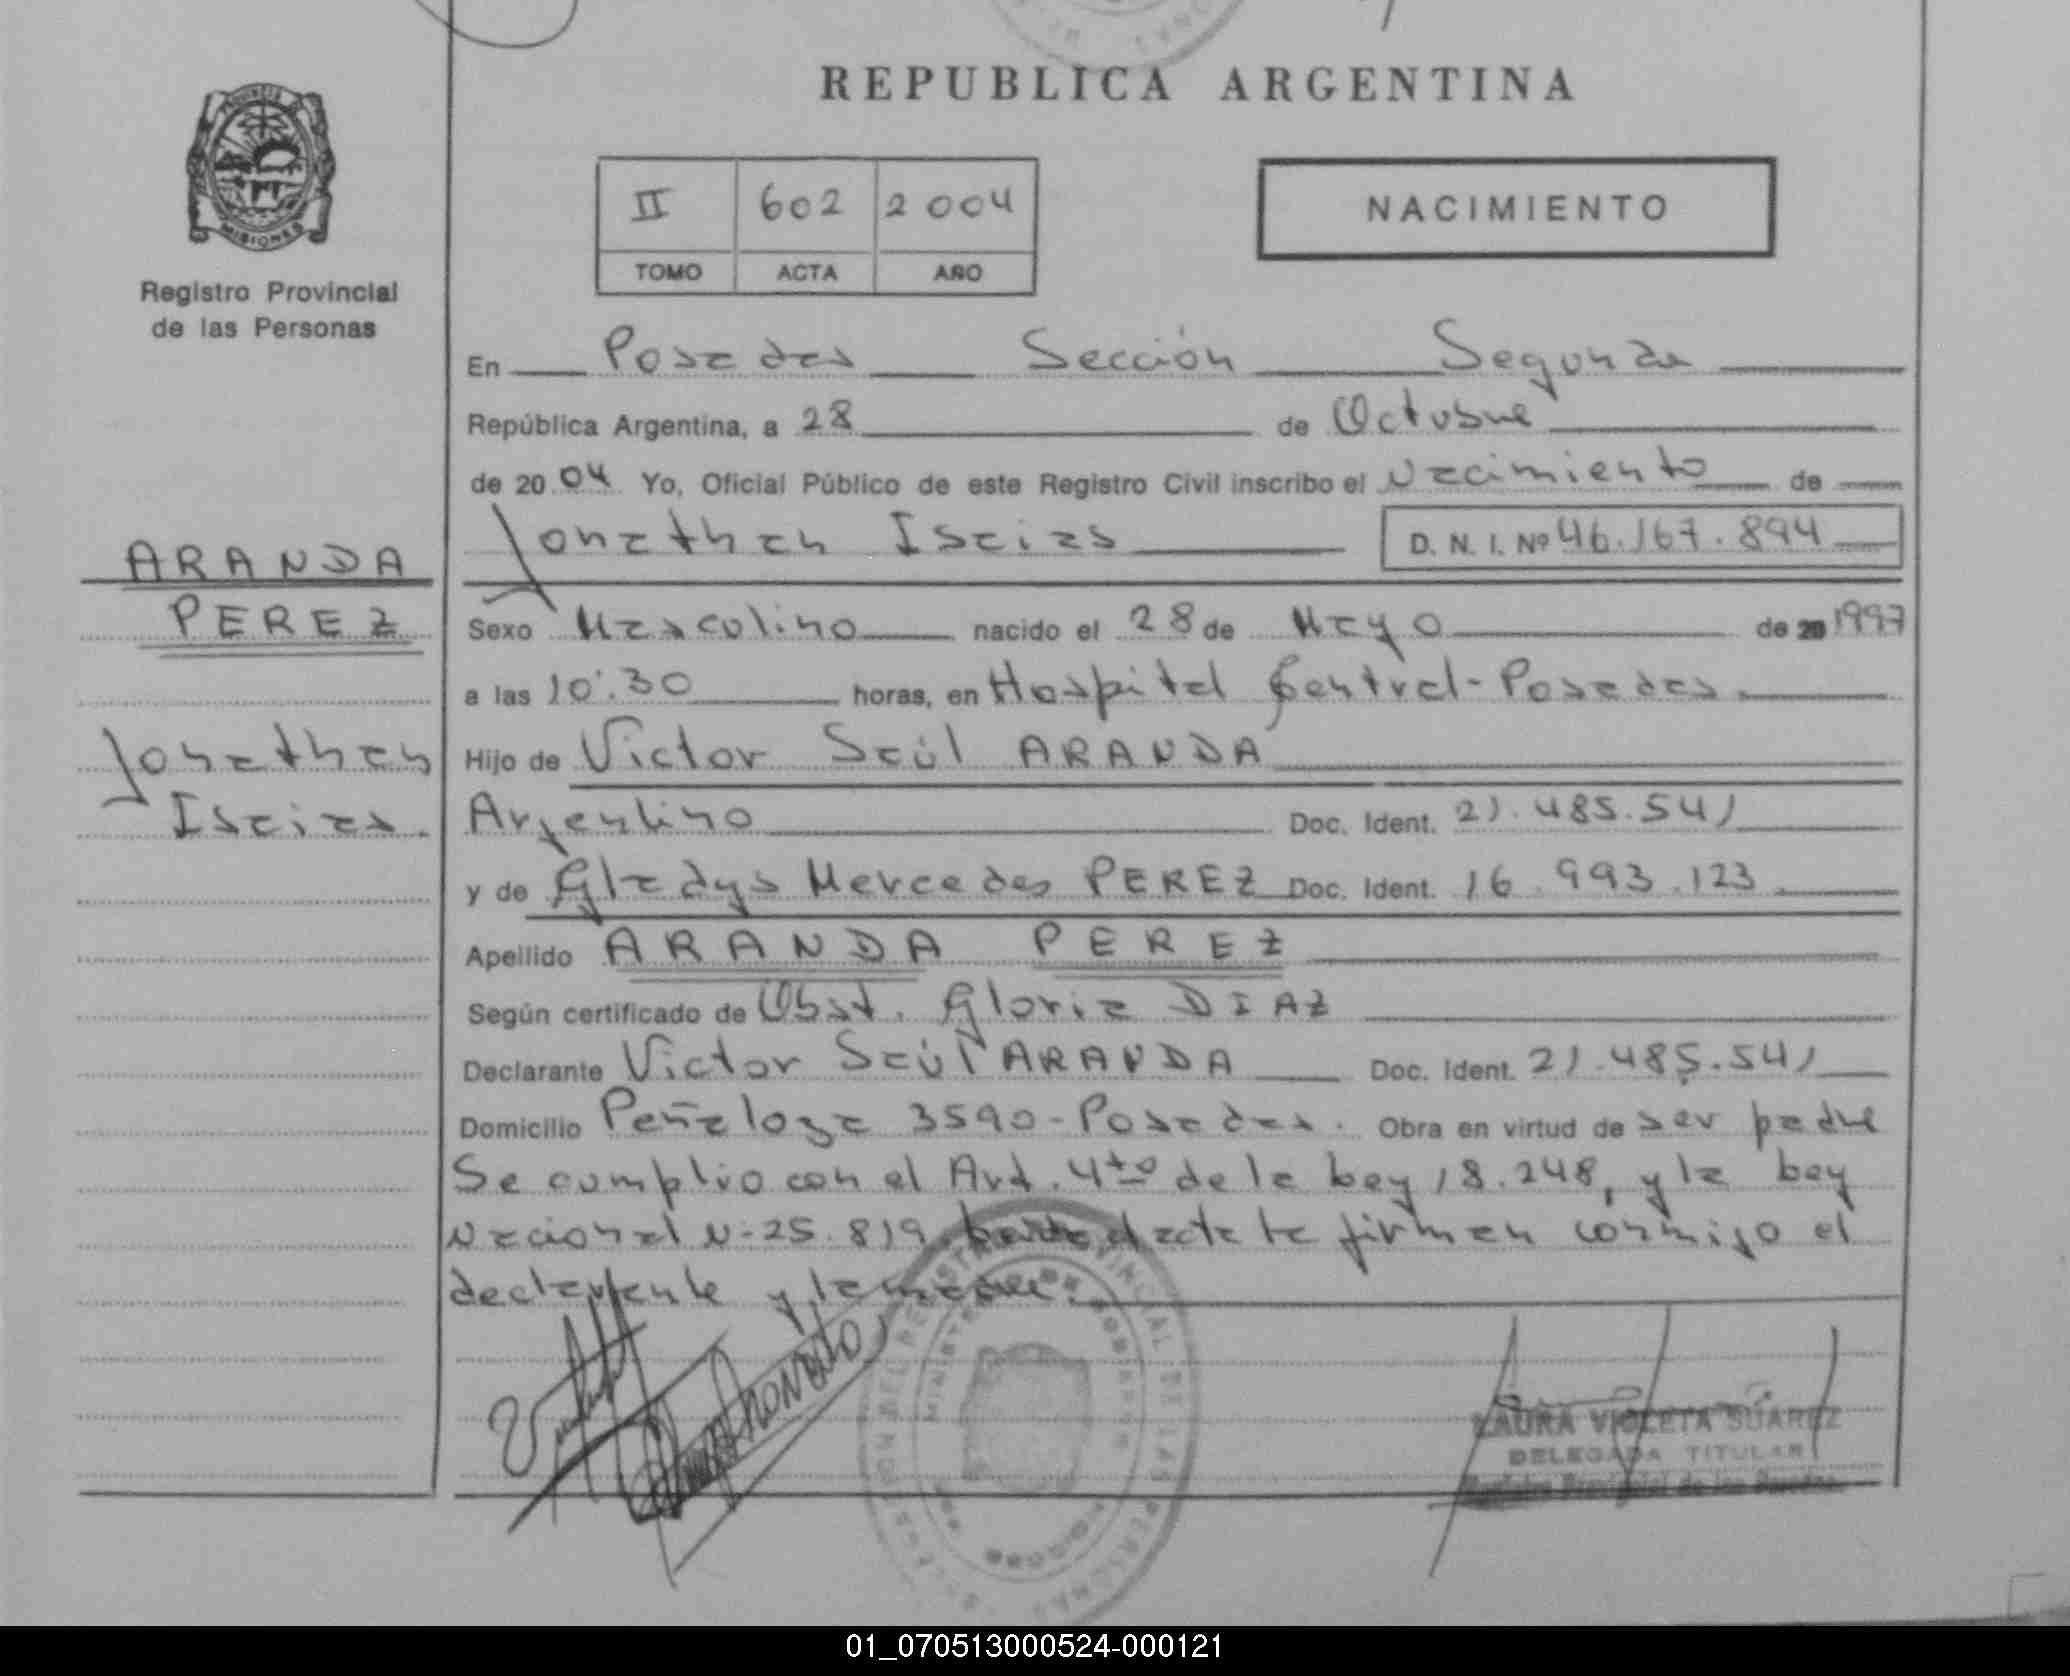 REPUBLICA ARGENTINA
PROVINCIA DE
MISIONES
Registro Provincial
de las Personas
II 602 2004
TOMO ACTA AÑO
NACIMIENTO
En Posadas Sección Segunda
República Argentina, a 28 de Octubre
de 2004 Yo, Oficial Público de este Registro Civil inscribo el Nacimiento de
Jonathan Isaias D. N. I. Nº 46.167.894
ARANDA
PEREZ
Jonathan
Isaias.
Sexo Masculino nacido el 28 de Mayo de 20 1997
a las 10:30 horas, en Hospital Central - Posadas.
Hijo de Victor Saúl ARANDA
Argentino Doc. Ident. 21.485.541
y de Gladys Mercedes PEREZ Doc. Ident. 16.993.123
Apellido ARANDA PEREZ
Según certificado de Obst. Gloria DIAZ
Declarante Victor Saúl ARANDA Doc. Ident. 21.485.541
Domicilio Peñaloza 3590 - Posadas. Obra en virtud de ser padre
Se cumplio con el Art. 4to de la Ley 18.248, y la Ley
Nacional N- 25.819 acta la firman conmigo el
declarante y la madre.
LAURA VIOLETA SUAREZ
DELEGADA TITULAR
Registro Provincial de las Personas
01_070513000524-000121